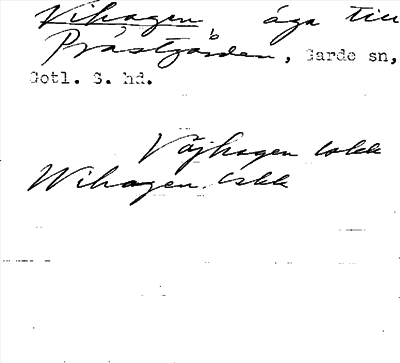 Vihagen, äga till
Prästgården, Garde sn,
Gotl. S. hd.
Väjhagen lskk
Wihagen. lskk